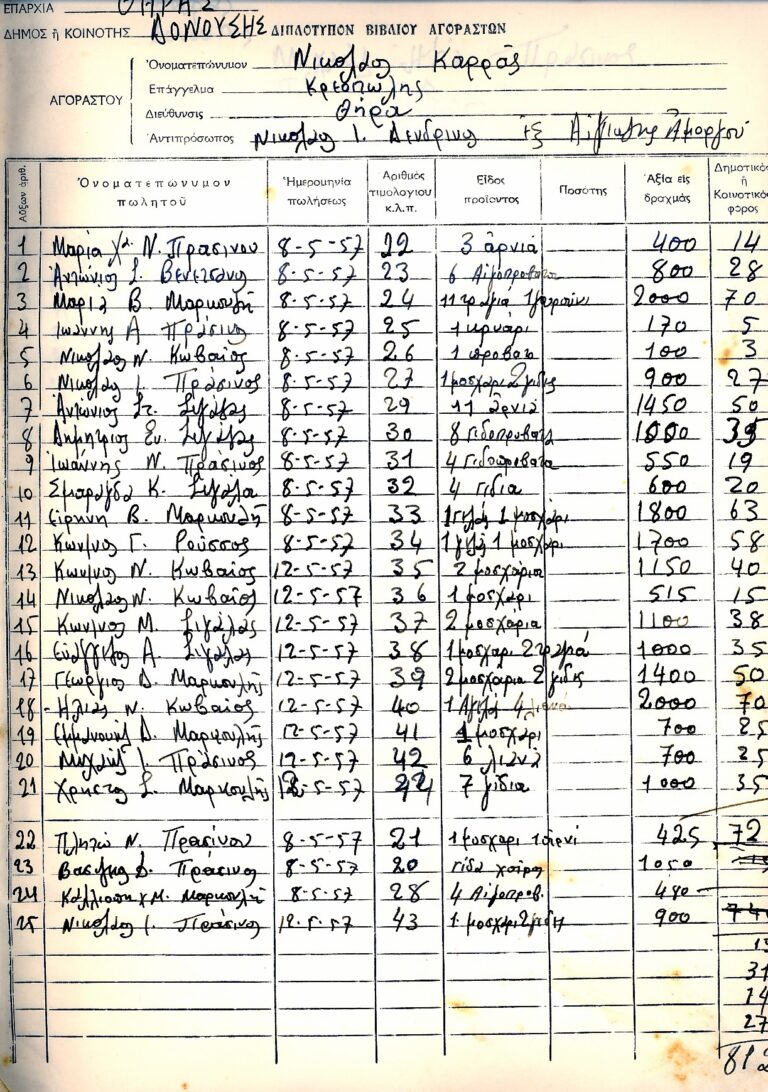 ΕΠΑΡΧΙΑ ΘΗΡΑΣ
ΔΗΜΟΣ ἢ ΚΟΙΝΟΤΗΣ ΔΟΝΟΥΣΗΣ ΔΙΠΛΟΤΥΠΟΝ ΒΙΒΛΙΟΥ ΑΓΟΡΑΣΤΩΝ
ΑΓΟΡΑΣΤΟΥ
Ὀνοματεπώνυμον Νικολάος Καρράς
Ἐπάγγελμα Κρεοπώλης
Διεύθυνσις Θήρα
Ἀντιπρόσωπος Νικολαος Ι. Δενδρινο ἐξ Αἰγιαλης Ἀμοργού
Αὔξων ἀριθ. Ὀνοματεπώνυμον πωλητοῦ Ἡμερομηνία πωλήσεως Ἀριθμὸς τιμολογίου κ.λ.π. Εἶδος προϊοντος Ποσότης Ἀξία εἰς δραχμάς Δημοτικὸς ἢ Κοινοτικὸς φόρος
1 Μαρία Χα Ν. Πρασινου 8-5-57 22 3 ἀρνιά 400 14
2 Αντώνιος Σ. Βενετσάνο 8-5-57 23 6 Αἰγοπροβατα 800 28
3 Μαρία Β. Μαρκουλή 8-5-57 24 11 τραγια 2000 70
4 Ιωάννης Α Πράσινο 8-5-57 25 1 κρυάρι 170 5
5 Νικολαος Ν. Κωβαίος 8-5-57 26 1 προβατο 100 3
6 Νικολαος Ι. Πράσινος 8-5-57 27 1 μοσχάρι 2 γίδες 900 27
7 Αντώνιος Στ. Σιγάλας 8-5-57 29 11 ἀρνιά 1450 50
8 Δημήτριος Ευ. Σιγάλας 8-5-57 30 8 γιδοπροβατα 1000 35
9 Ιωάννης Ν. Πράσινος 8-5-57 31 4 Γιδοπροβατα 550 19
10 Σμαράγδα Κ. Σιγάλα 8-5-57 32 4 Γίδια 600 20
11 Ειρήνη Β. Μαρκουλή 8-5-57 33 1 μοσχάρι 1800 63
12 Κων/νος Γ. Ρούσσος 8-5-57 34 1 μοσχάρι 1700 58
13 Κων/νος Ν. Κωβαίος 12-5-57 35 2 μοσχάρια 1150 40
14 Νικολαος Ν. Κωβαίος 12-5-57 36 1 μοσχάρι 515 15
15 Κων/νος Μ. Σιγάλας 12-5-57 37 2 μοσχάρια 1100 38
16 Εὐάγγελος Α. Σιγάλας 12-5-57 38 1 μοσχαρι 2 τραγιά 1000 35
17 Γεώργιος Δ. Μαρκουλής 12-5-57 39 2 μοσχαρια 2 γίδες 1400 50
18 - Ηλίας Ν. Κωβαίος 12-5-57 40 1 Αγελά 4 2000 70
19 Εμμανουήλ Δ. Μαρκουλής 12-5-57 41 1 μοσχάρι 700 25
20 Μιχαήλ Ι. Πράσινος 12-5-57 42 6 700 25
21 Χρήστο Σ. Μαρκουλής 12-5-57 44 7 γίδια 1000 35
22 Ν. Πρασίνου 8-5-57 21 1 μοσχαρι 1 αρνί 425 72
23 Βασίλης Δ. Πράσινος 8-5-57 20 γίδα χοίρος 1050
24 Καλλιόπη χ Μ. Μαρκουλή 8-5-57 28 4 Αἰγοπροβ. 480
25 Νικολαος Ι. Πράσινος 12-5-57 43 1 μοσχαρι 2 γίδες 900
31
14
27
812